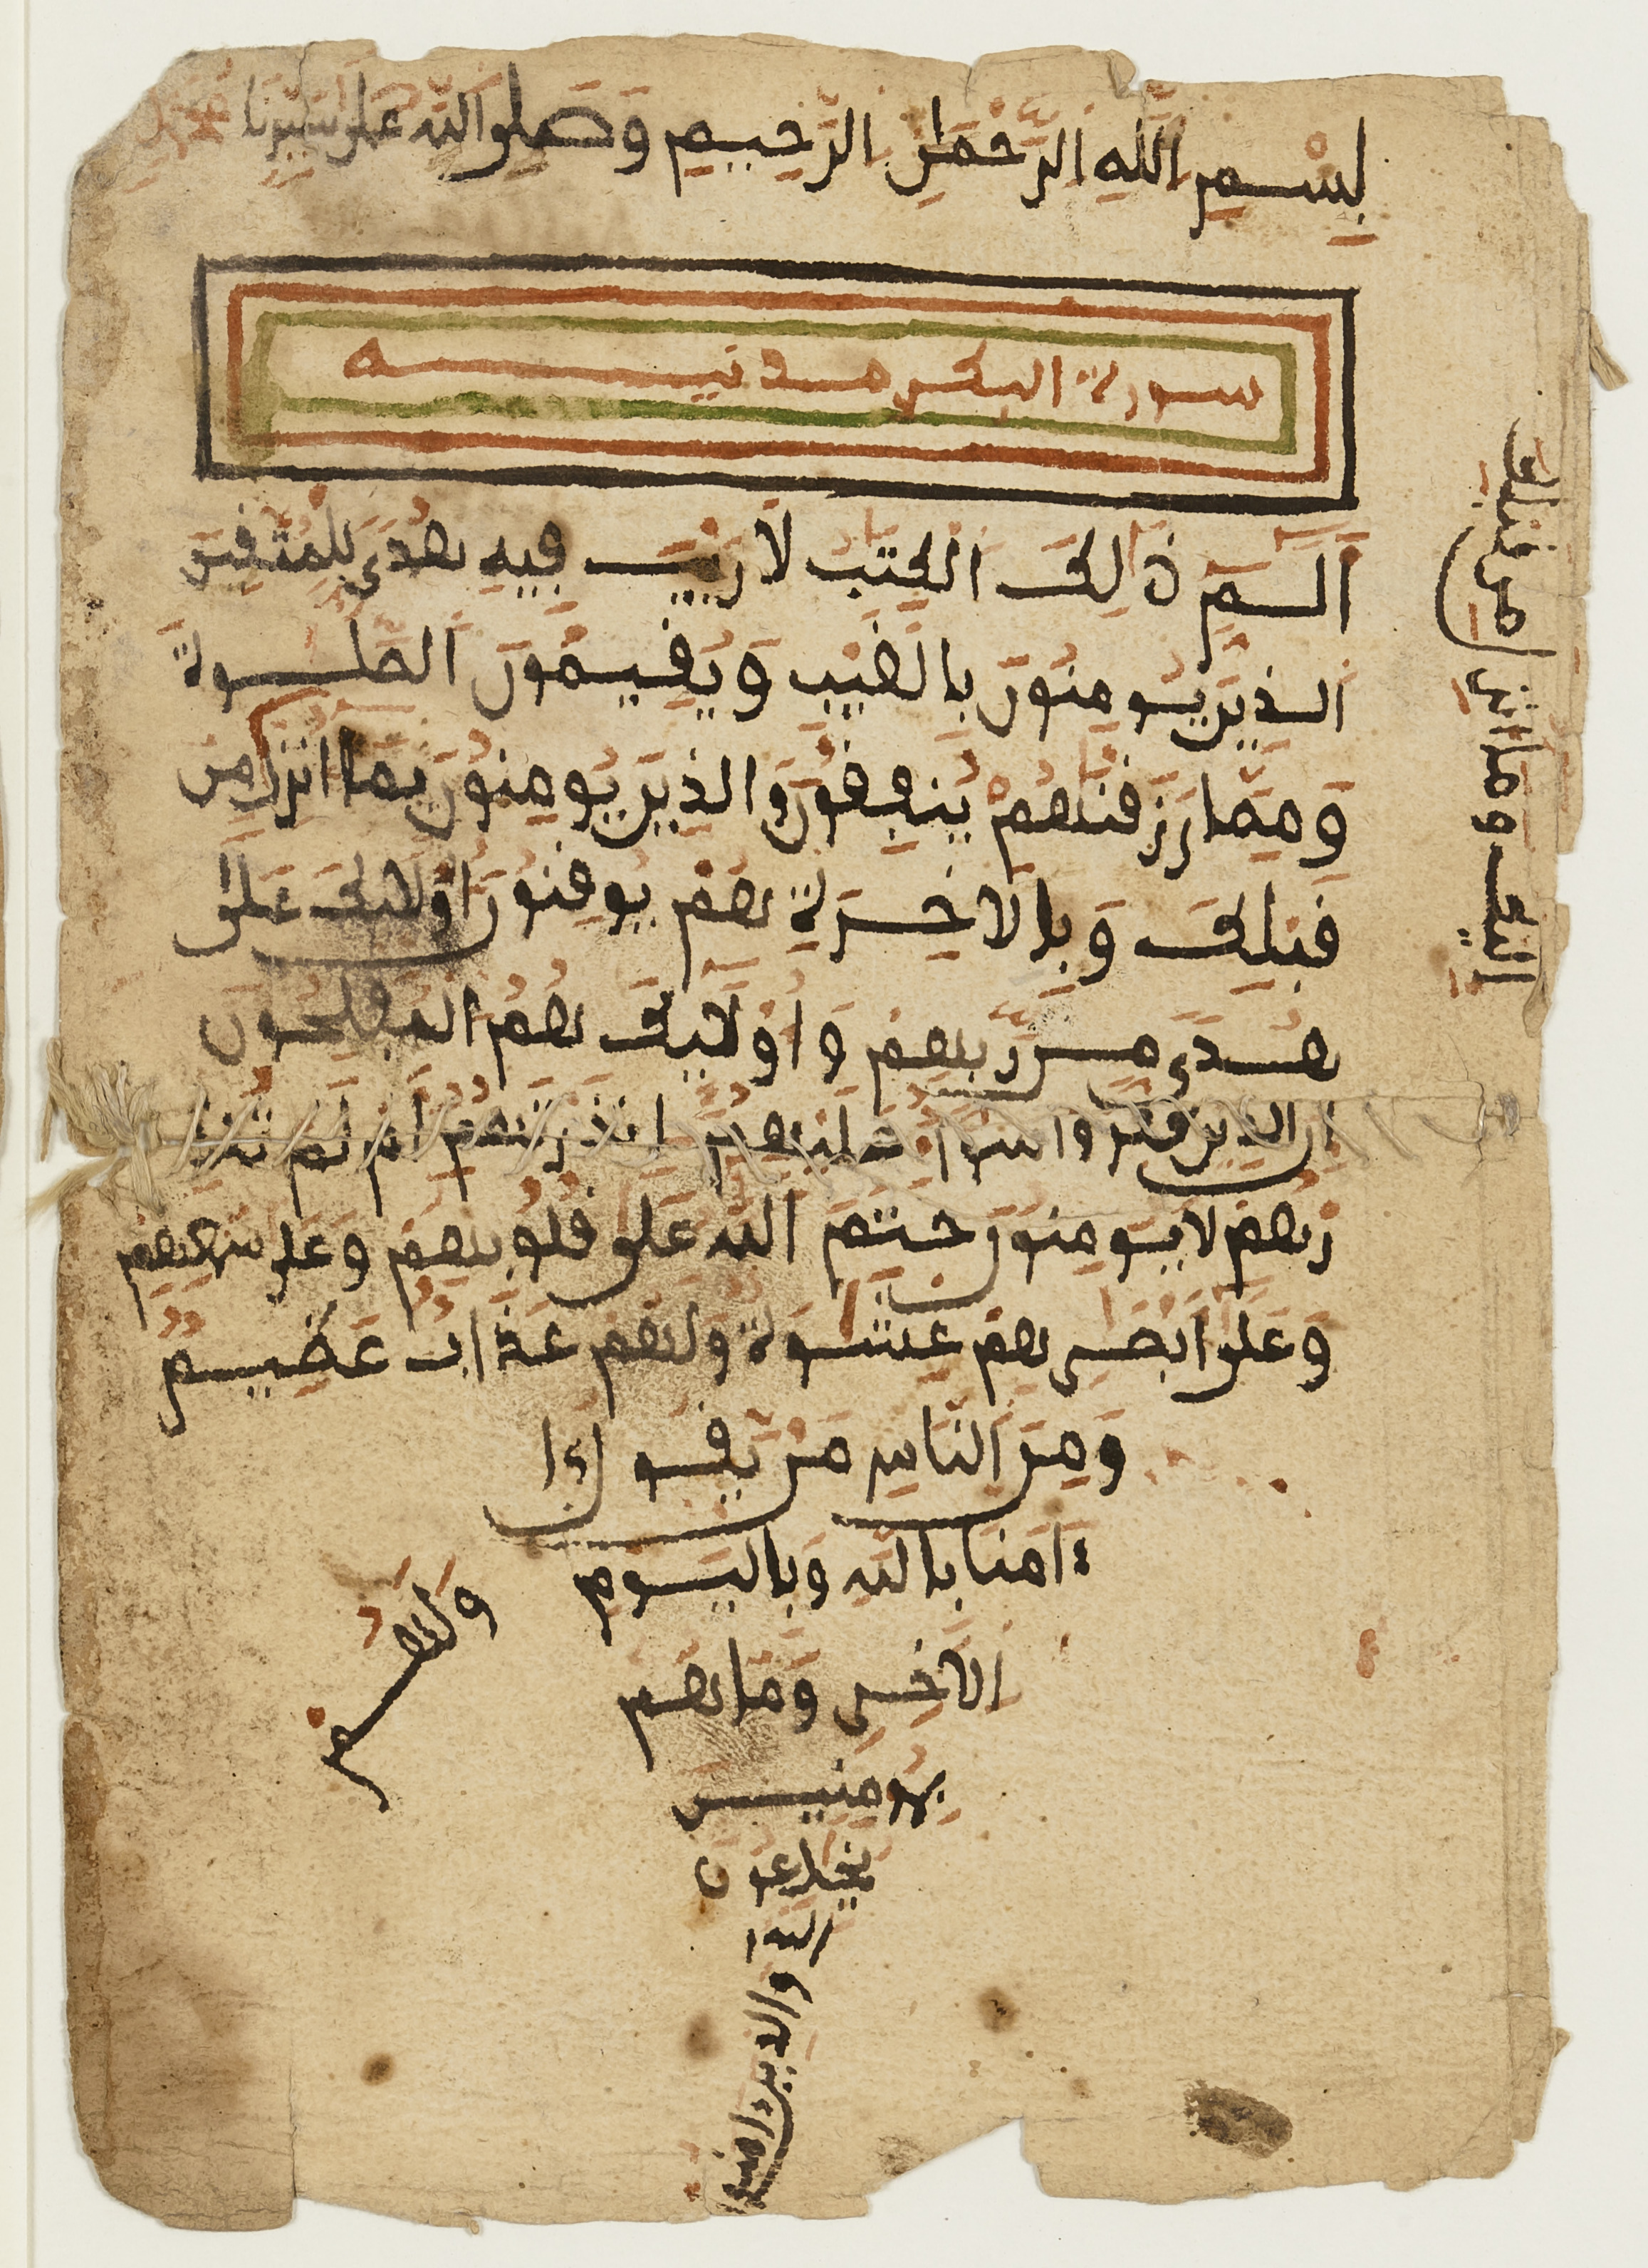 بِسْمِ اللَّهِ الرَّحْمَٰنِ الرَّحِيمِ وَصَلَّى اللَّهُ عَلَىٰ سَيِّدِنَا مُحَمَّدٍ
سورة البكر مدنيه
الٓمٓ ذَٰلِكَ الْكِتَٰبُ لَا رَيْبَ فِيهِ هُدًى لِّلْمُتَّقِينَ
الذِينَ يُومِنُونَ بِالْغَيْبِ وَيُقِيمُونَ الصَّلَوٰةَ
وَمِمَّا رَزَقْنَٰهُمْ يُنفِقُونَ وَالذِينَ يُومِنُونَ بِمَا أُنزِلَ مِن
قَبْلِكَ وَبِالَاخِرَةِ هُمْ يُوقِنُونَ أُوْلَٰئِكَ عَلَىٰ
هُدًى مِّن رَّبِّهِمْ وَأُوْلَٰئِكَ هُمُ الْمُفْلِحُونَ
إِنَّ الذِينَ كَفَرُوا سَوَاءٌ عَلَيْهِمْ ءَانذَرْتَهُمْ أَمْ لَمْ تُنذِ
رْهُمْ لَا يُومِنُونَ خَتَمَ اللَّهُ عَلَىٰ قُلُوبِهِمْ وَعَلَىٰ سَمْعِهِمْ
وَعَلَىٰ أَبْصَٰرِهِمْ غِشَٰوَةٌ وَلَهُمْ عَذَابٌ عَظِيمٌ
وَمِنَ النَّاسِ مَنْ يَّقُولُ
ءَامَنَّا بِاللَّهِ وَبِالْيَوْمِ
الَاخِرِ وَمَا هُم
بِمُومِنِينَ
يُخَٰدِعُونَ
اللَّهَ
وَالذِينَ ءَامَنُوا
إِلَيْكَ وَمَا أُنزِلَ مِن قَبْلِكَ